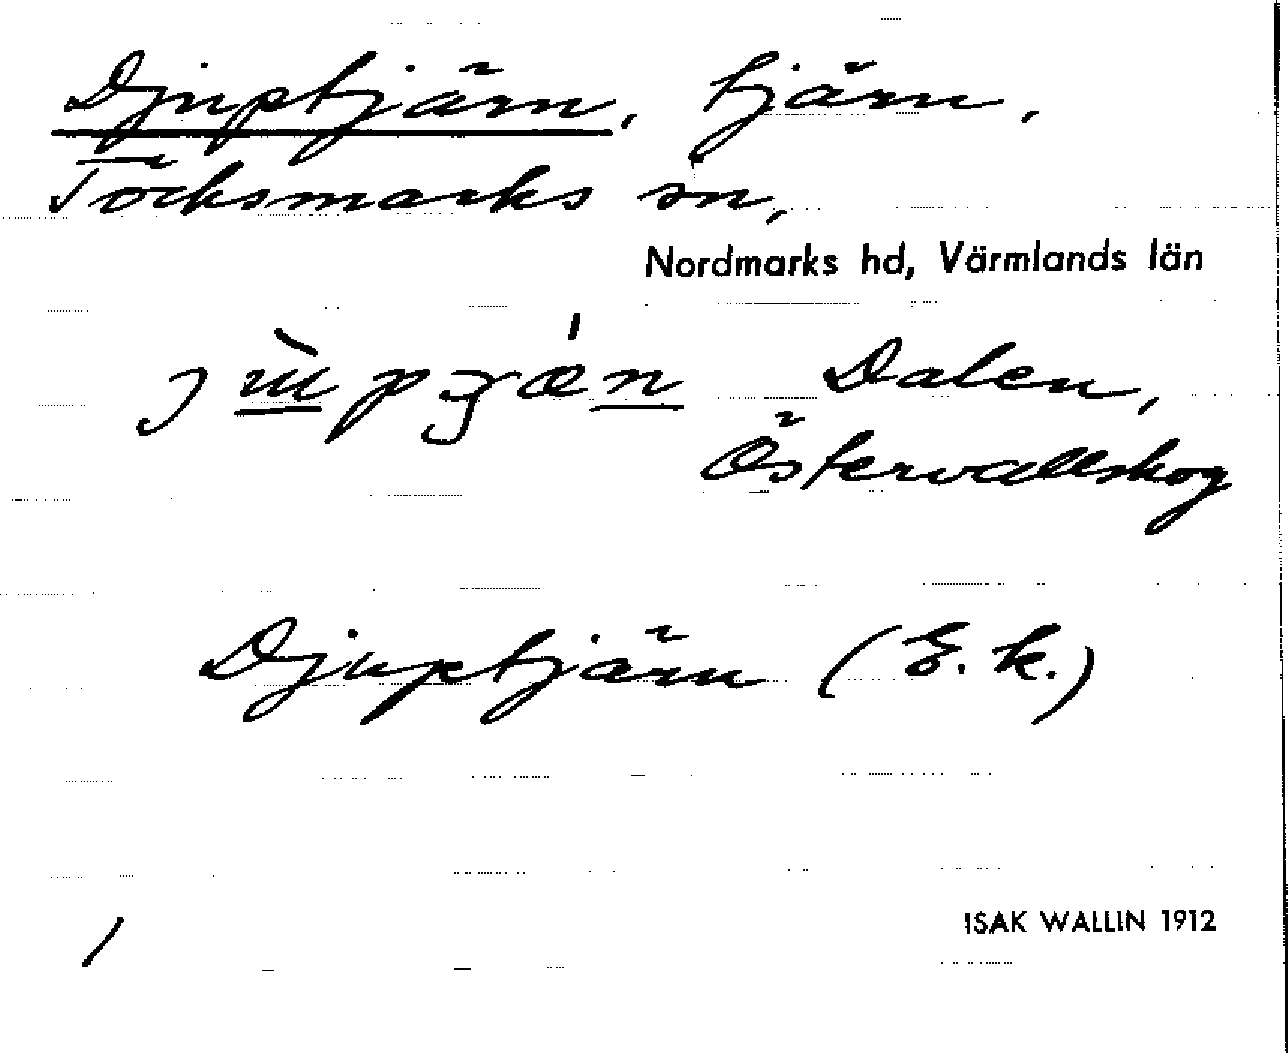 Djuptjärn, tjärn,
Töcksmarks sn,
Nordmarks hd, Värmlands län
Dalen,
Östervallskog
Djuptjärn (E.k.)
/
ISAK WALLIN 1912